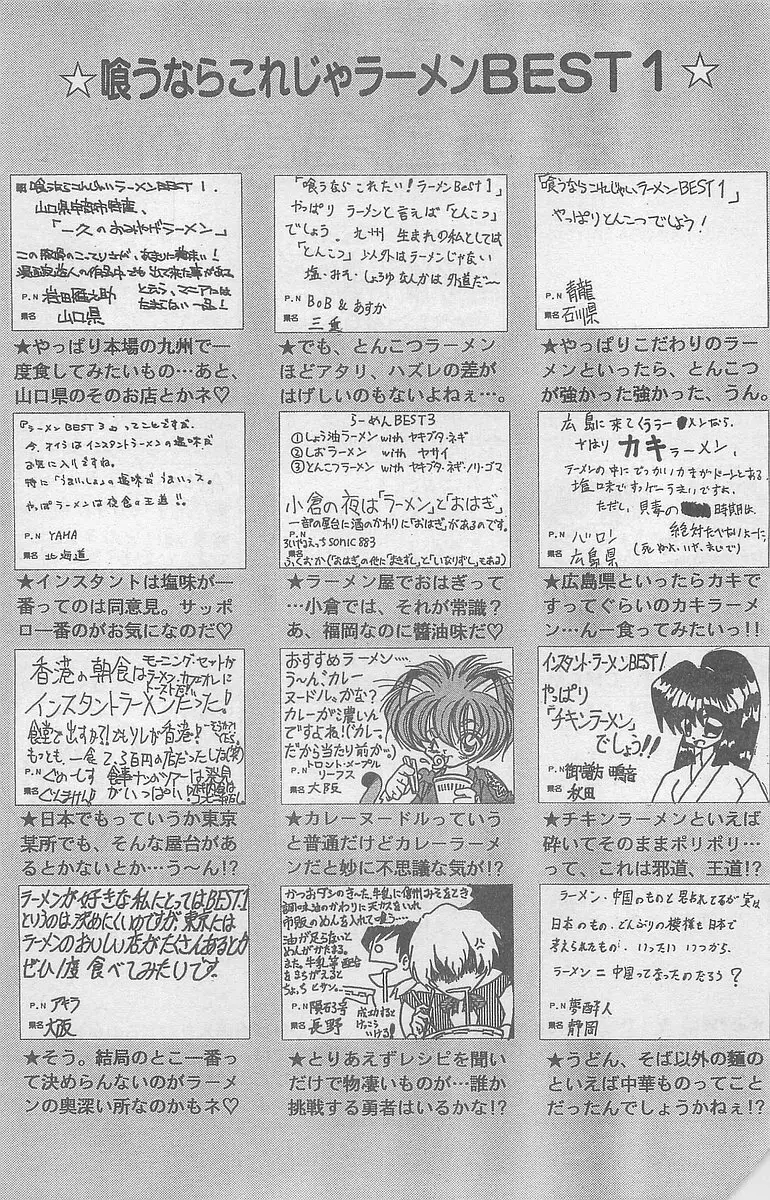 ☆喰うならこれじゃラーメンBEST1☆
喰うならこんじゃいラーメンBEST1.
山口県宇部市特産、
「一久のおみやげラーメン」
この豚骨のこってりさが、あまりに美味い!
とあって、マニアには
たまらない一品!
P.N 岩田
県名 山口県
★やっぱり本場の九州で一
度食してみたいもの…あと、
山口県のそのお店とかネ♡
「喰うなら これたい!ラーメンBest1」
やっぱり ラーメンと言えば「とんこつ」
でしょう。九州 生まれの私としては
「とんこつ」以外はラーメンじゃない
塩・みそ・しょうゆなんかは外道だ〜
P.N BoB & あすか
県名 三重
★でも、とんこつラーメン
ほどアタリ、ハズレの差が
はげしいのもないよねぇ…。
「喰うならこれじゃい、ラーメンBEST1」
やっぱりとんこつでしょう!
P.N 青龍
県名 石川県
★やっぱりこだわりのラー
メンといったら、とんこつ
が強かった強かった、うん。
『ラーメンBEST3』ってことですが、
今、オイラはインスタントラーメンの塩味が
お気に入りですね。
特に「うまいしょ」の塩味でうまいっス。
やっぱラーメンは夜食の王道!!
P.N YAHA
県名 北海道
★インスタントは塩味が一
番ってのは同意見。サッポ
ロ一番のがお気になのだ♡
らーめんBEST3
①しょう油ラーメン with ヤキブタ・ネギ
②しおラーメン with ヤサイ
③とんこつラーメン with ヤキブタ・ネギ・ノリ・ゴマ
小倉の夜は「ラーメン」と「おはぎ」
一部の屋台に酒のかわりに「おはぎ」があるのです。
P.N
sonic 883
県名
ふくおか(「おはぎ」の他に「まきずし」と「いなりずし」もある)
★ラーメン屋でおはぎって
…小倉では、それが常識?
あ、福岡なのに醬油味だ♡
広島に来てくうラーメンなら、
やはり カキラーメン、
ラーメンの中にでっかいカキがドーンとある
塩味ですっげーうまいですよ。
ただし、貝毒の時期は、
絶対たべないように。
P.N バロン
県名 広島県
★広島県といったらカキで
すってぐらいのカキラーメ
ン…ん一食ってみたいっ!!
香港の朝食は
モーニング・セットが
インスタントラーメンだった!
食堂で出すか?!
もっとも、一食で、
P.N
県名
★日本でもっていうか東京
某所でも、そんな屋台があ
るとかないとか…う〜ん!?
おすすめラーメン…
う〜ん、カレー
ヌードル、かな?
カレーが濃いん
ですよね!(カレー
だから当たり前か。)
P.N トロント・メープル
リーフス
県名 大阪
★カレーヌードルっていう
と普通だけどカレーラーメ
ンだと妙に不思議な気が!?
インスタント・ラーメンBEST1
やっぱり
「チキンラーメン」
でしょう!!
P.N 御諏訪 鳴音
県名 秋田
★チキンラーメンといえば
砕いてそのままポリポリ…
って、これは邪道、王道!?
ラーメンが好きな私にとってはBEST.1
というのは決めにくいのですが、東京には
ラーメンのおいしい店がたくさんあるとか
ぜひ1度 食べてみたいです。
P.N アキラ
県名 大阪
★そう。結局のとこ一番っ
て決めらんないのがラーメ
ンの奥深い所なのかもネ♡
かつおダシのきいた牛乳に信州みそをとき
調味油のかわりに天カスをいれ
市販のめんを入れて喰う…
油が足らないと
めんがかたまる。
また、牛乳等配合
をまちがえると
ちょっちヒサン…
P.N 隕石3号
県名 長野
成功すると
けっこう
いける!
★とりあえずレシピを聞い
だけで物凄いものが…誰か
挑戦する勇者はいるかな!?
ラーメン・中国のものと思われてるが実は
日本のもの、どんぶりの模様も日本で
考えられたもの、いったい いつから、
ラーメン=中国って なったのだろう?
P.N 夢酔人
県名 静岡
★うどん、そば以外の麵の
といえば中華ものってこと
だったんでしょうかねぇ!?